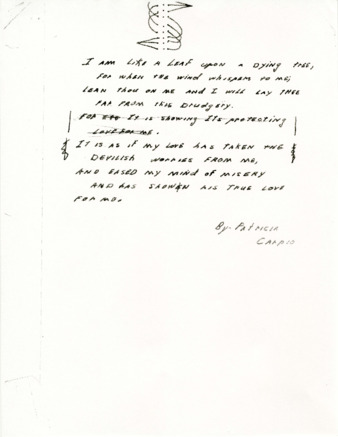 I AM LIKE A LEAF UPON A DYING TREE,
FOR WHEN THE WIND WHISPERS TO ME;
LEAN THOU ON ME AND I WILL LAY THEE
FAR FROM THIS DRUDGERY.
FOR IT IS SHOWING ITS PROTECTING
LOVE FOR ME.
IT IS AS IF MY LOVE HAS TAKEN THE
DEVILISH WORRIES FROM ME,
AND EASED MY MIND OF MISERY
AND HAS SHOWN HIS TRUE LOVE
FOR ME.
By. PATRICIA